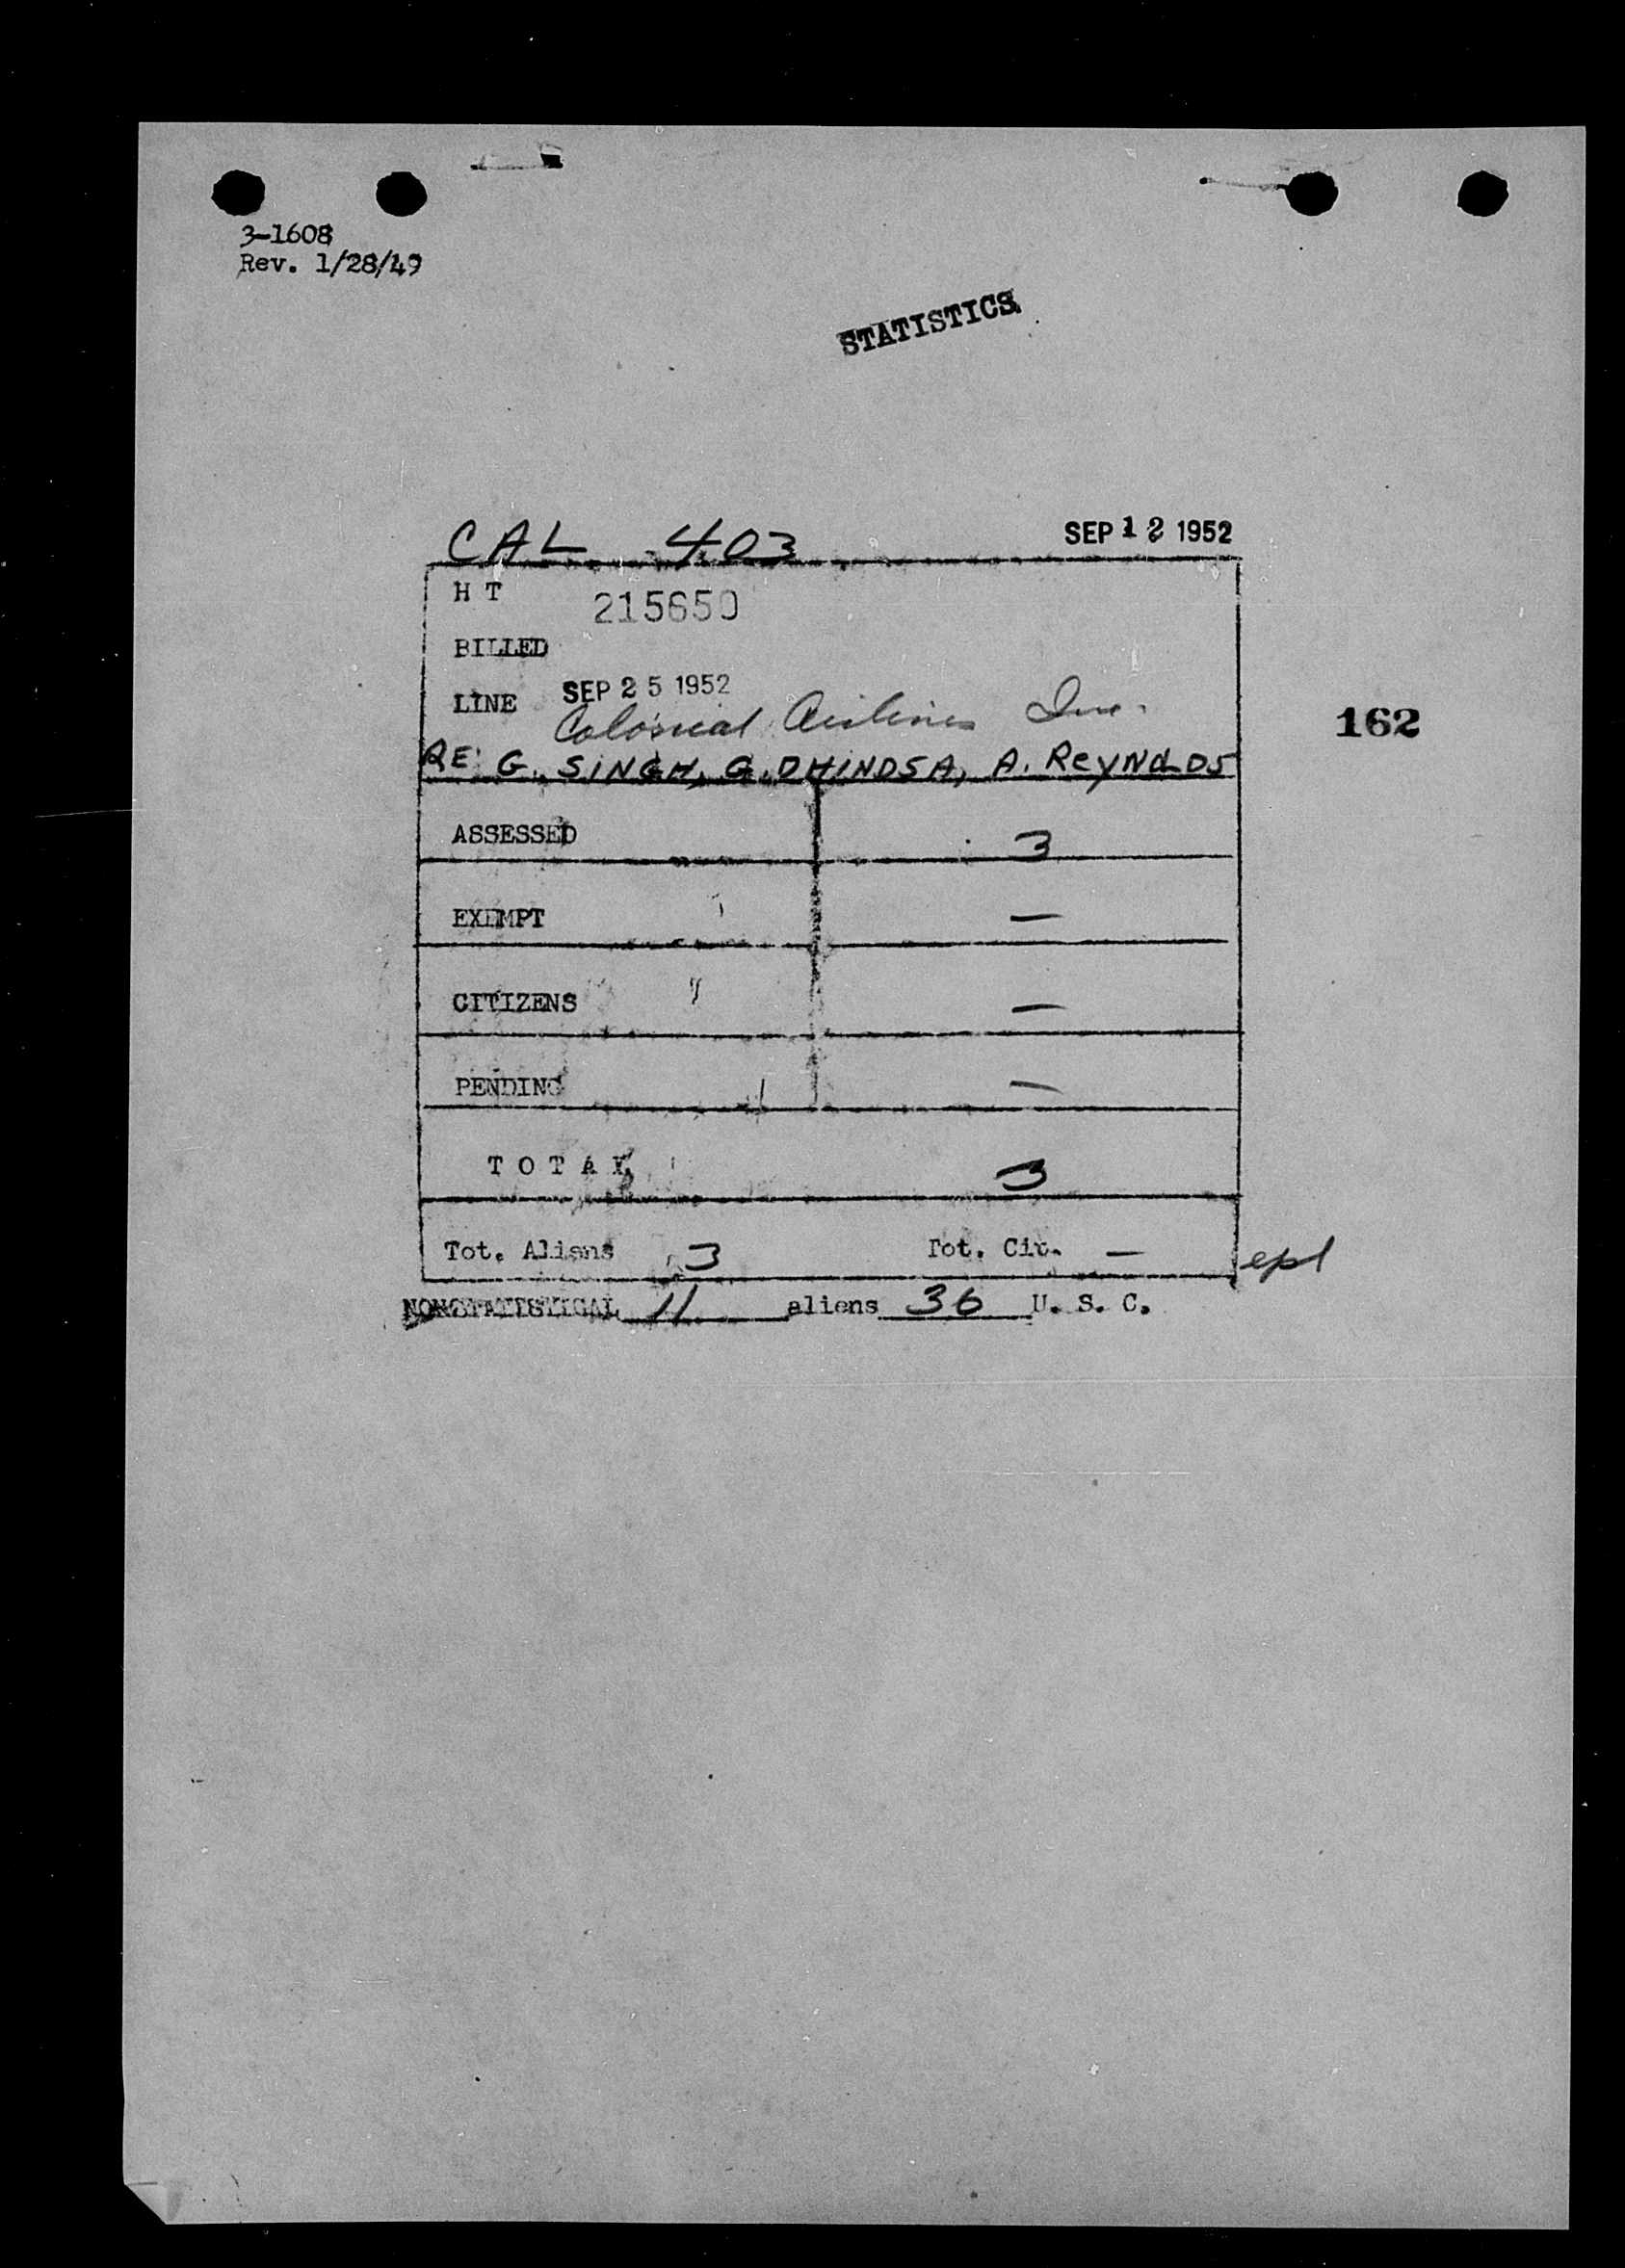 3-1608
Rev. 1/28/49
STATISTICS
CAL 403 SEP 12 1952
H T 215650
BILLED
LINE SEP 25 1952
Colonial Airlines Inc.
162
RE: G. SINGH, G. DHINDSA, A. REYNOLDS
ASSESSED 3
EXEMPT —
CITIZENS —
PENDING —
TOTAL 3
Tot. Aliens 3 Tot. Cit. — epl
NONSTATISTICAL 11 aliens 36 U. S. C.